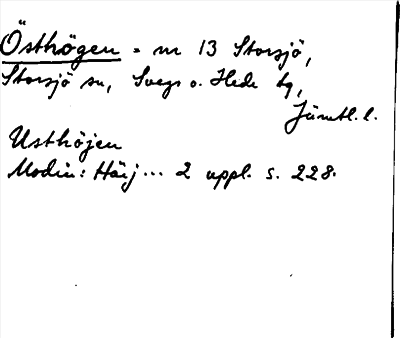 Östhögen = nr 13 Storsjö,
Storsjö sn, Svegs o. Hede tg,
Jämtl. l.
Usthöjen
Modin: Härj... 2 uppl. s. 228.